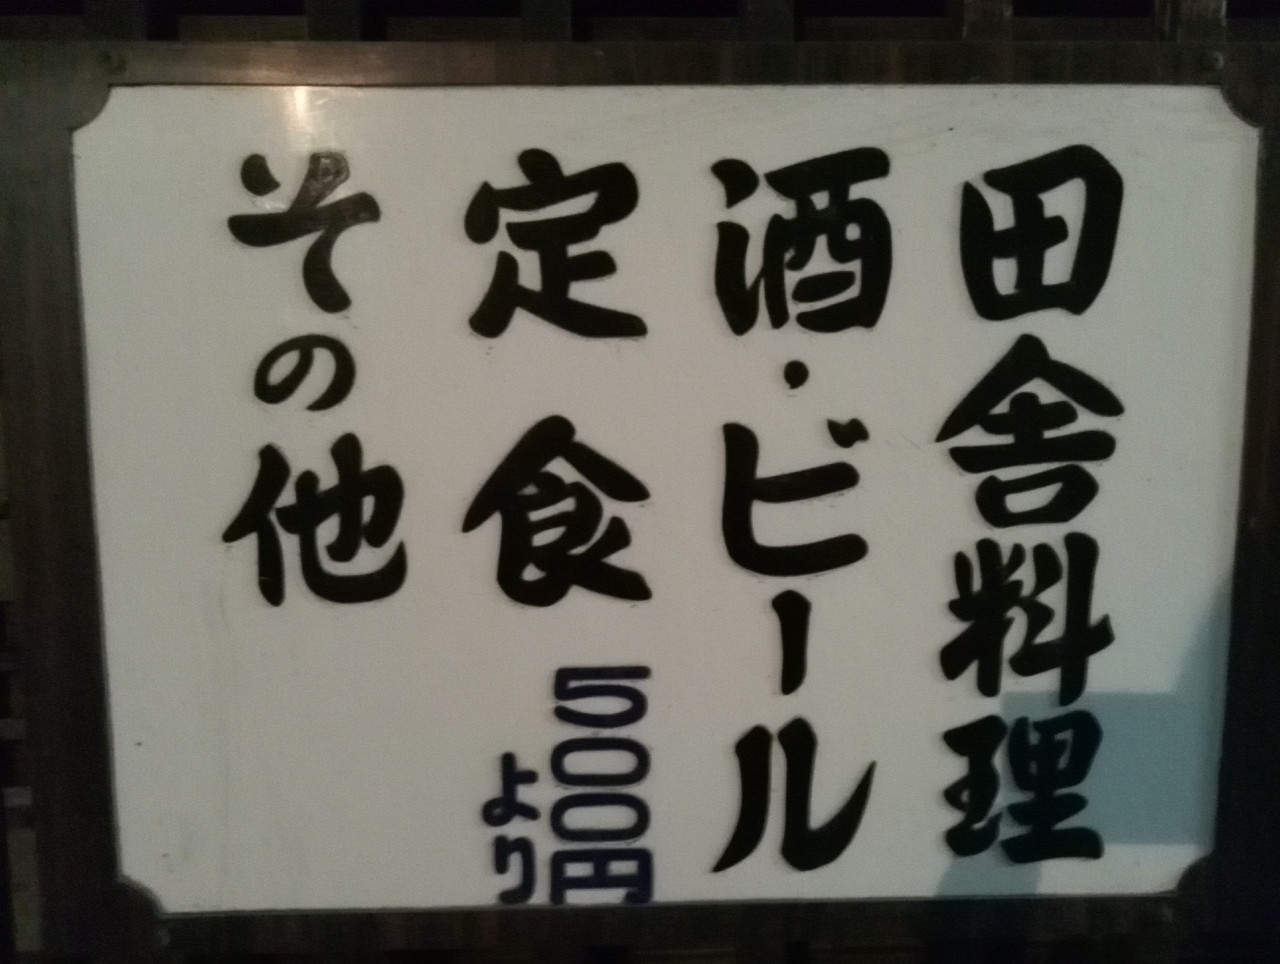 田舎料理
酒・ビール
定食 500円
より
その他